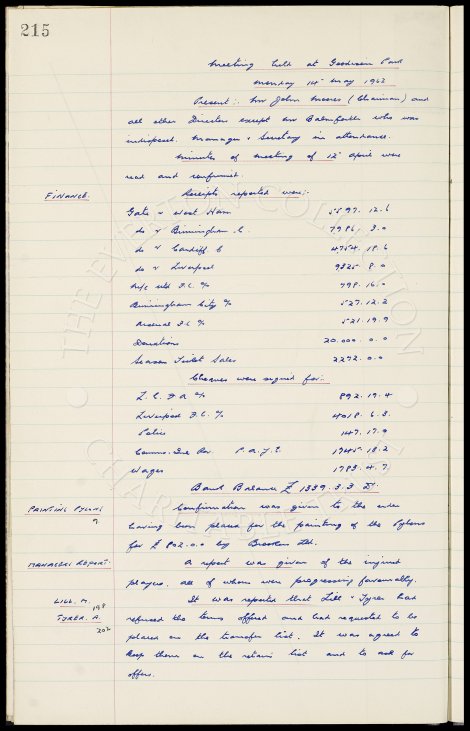 215
Meeting held at Goodison Park
Monday 14th May 1962
Present:- Mr John Moores (Chairman) and
all other Directors except Mr Balmforth who was
indisposed. Manager & Secretary in attendance.
Minutes of meeting of 12th April were
read and confirmed.
FINANCE. Receipts reported were:-
Gate v West Ham 5597.12.6
do v Birmingham C. 7986. 3.0
do v Cardiff C 4754.18.6
do v Liverpool 9825.8.0
N/c Utd F.C. % 798.16.0
Birmingham City % 527.12.2
Arsenal F.C % 521.19.9
Donations 20.000.0.0
Season Ticket Sales 2272.0.0
Cheques were signed for:-
L.C.F.A % 892.19.4
Liverpool F.C. % 4018.6.3
Police 147.17.9
Comms. Inl Rev. P.A.Y.E. 1945.18.2
Wages 1783.4.7
Bank Balance £ 1339.3.3
PAINTING PYLONS Confirmation was given to the order
having been placed for the painting of the Pylons
for £802.0.0 by Ltd.
MANAGERS REPORT. A report was given of the injured
players, all of whom were progressing favourably.
LILL. M. 198 It was reported that Lill & Tyrer had
TYRER. A. 202 refused the terms offered and had requested to be
placed on the transfer list. It was agreed to
keep them on the retain list and to ask for
offers.
THE EVERTON COLLECTION